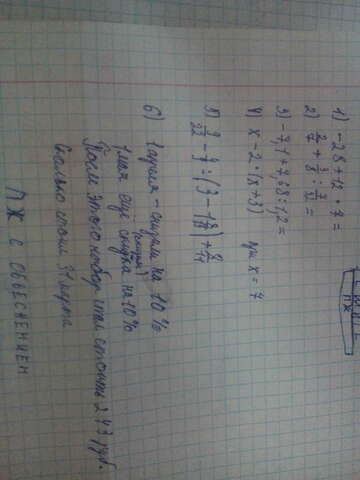 ПЖ
1) -28+12·7=
2) 2/7 + 3/8 : 7/32 =
3) -7,1+7,68:1,2=
4) x-2·(x+3) при x=7
5) 9/22 - 4/9 : (3 - 1 8/13) + 8/11
6) 1 апреля - снизили на 10%
(снизили)
1 мая ещё скидка на 10%
После этого набор стал стоить 243 руб.
Сколько стоил 31 марта
ПЖ С ОБЬЕСНЕНИЕМ